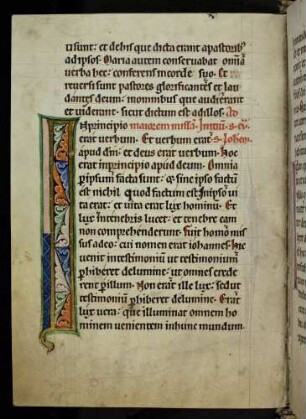 uerunt: et de his que dicta erant a pastorib;
ad ipsos. Maria autem conseruabat omia
uerba hec: conferens in corde suo. Et re
uersi sunt pastores glorificantes et lau
dantes deum: in omnibus que audierant
et uiderant. sicut dictum est ad illos. Ad
In principio maiorem missam.
erat uerbum. Et uerbum erat
apud dm: et deus erat uerbum. Hoc
erat in principio apud deum. Omnia
per ipsum facta sunt: et sine ipso factum
est nichil. Quod factum est in ipso ui
ta erat: et uita erat lux hominum. Et
lux in tenebris lucet: et tenebre eam
non comprehenderunt. Fuit homo mis
sus a deo: cui nomen erat iohannes. hic
uenit in testimonium ut testimonium
perhiberet de lumine: ut omnes crede
rent per illum. Non erat ille lux: sed ut
testimonium perhiberet de lumine. Erat
lux uera: que illuminat omnem ho
minem uenientem in hunc mundum.